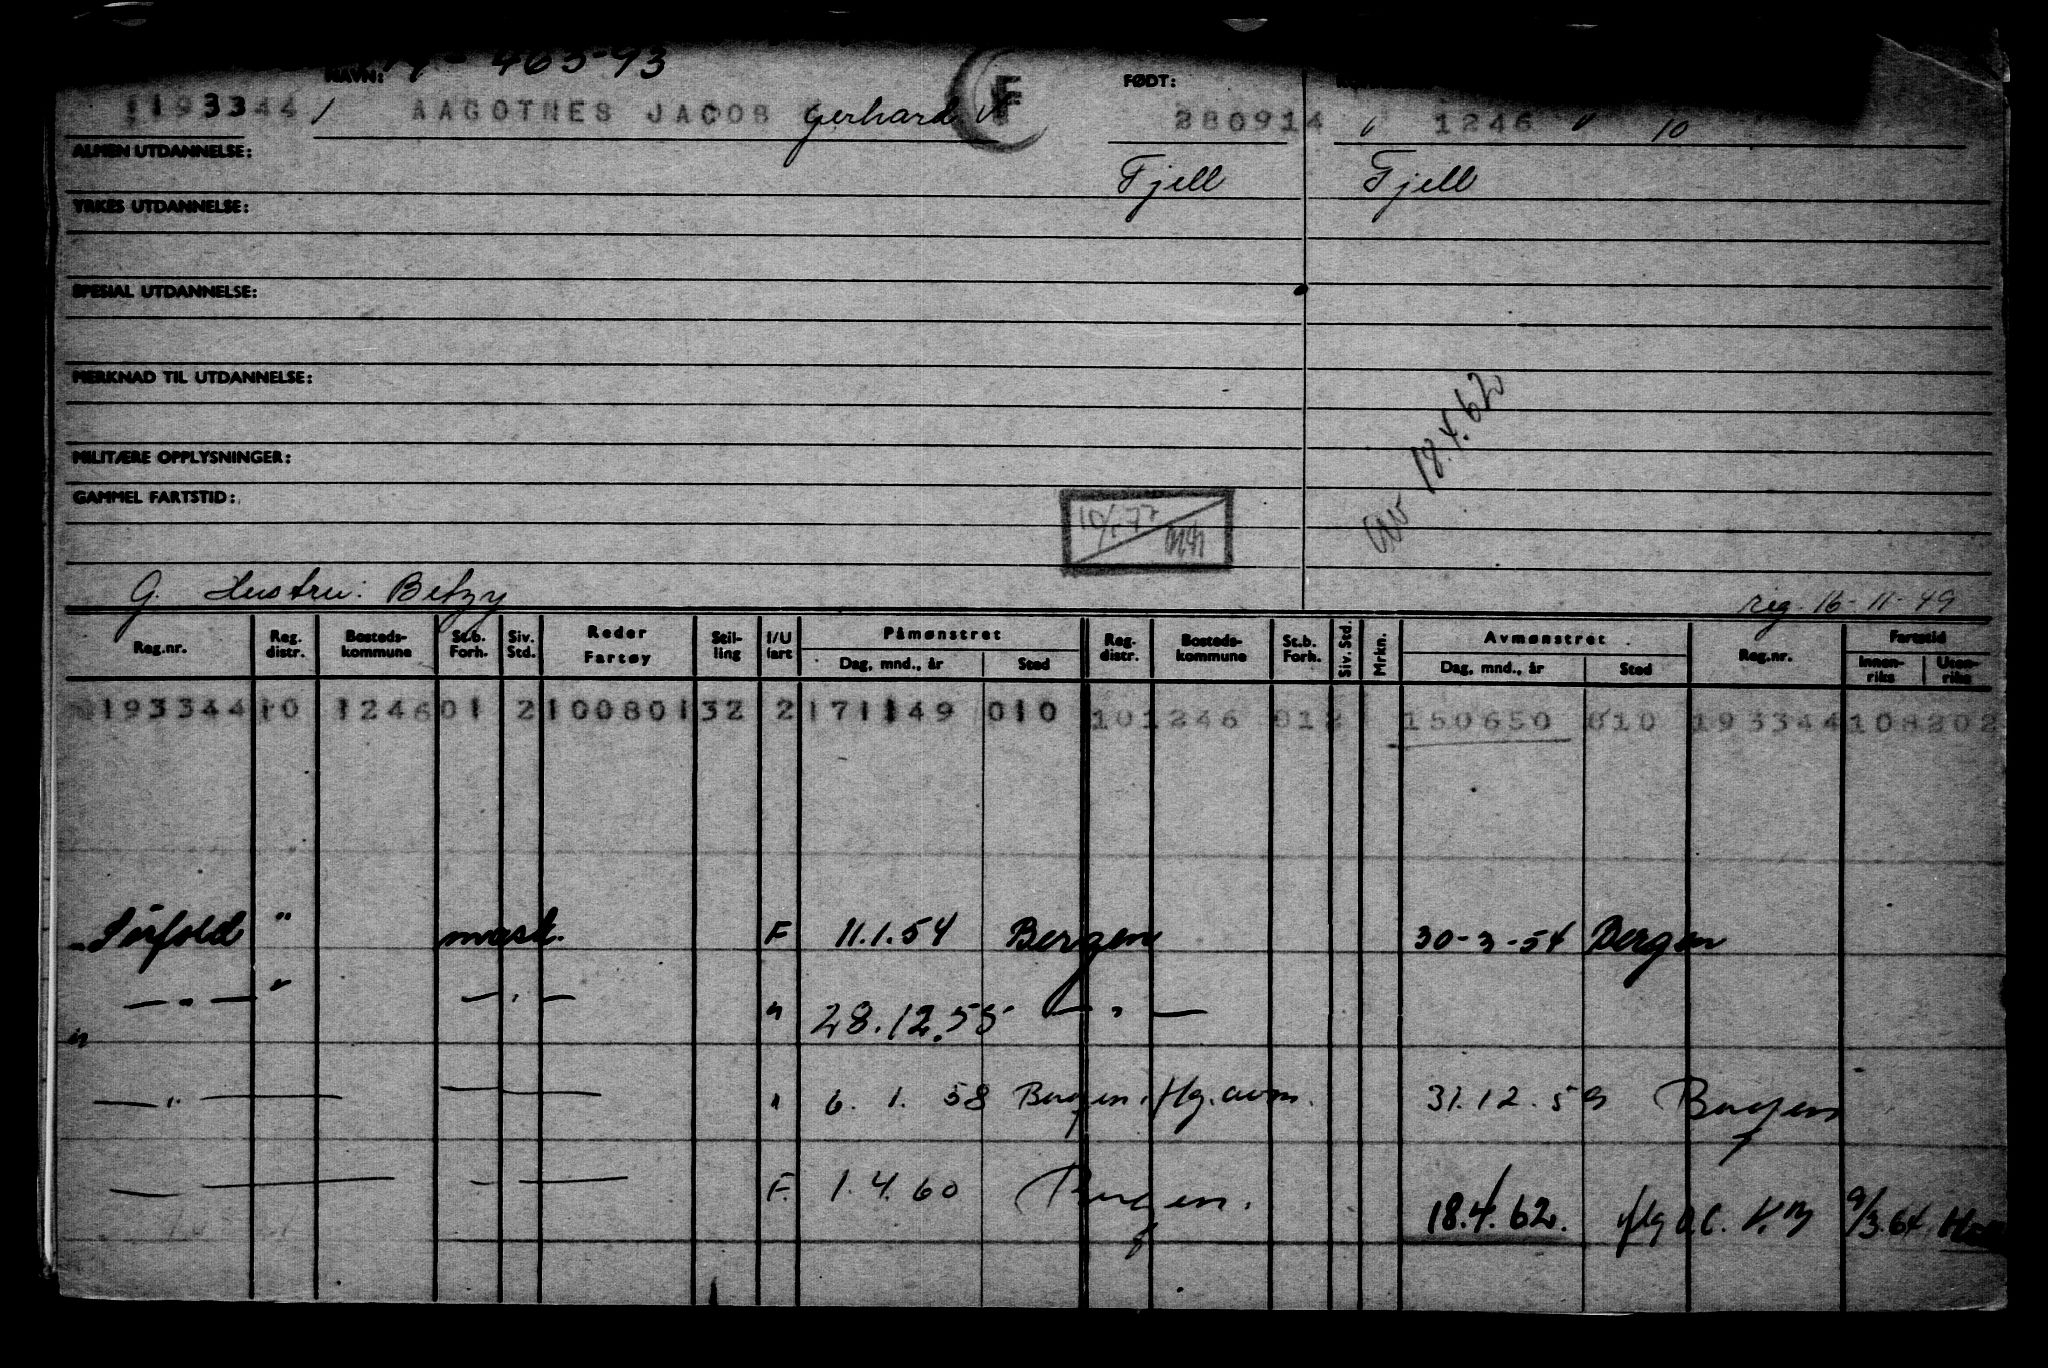 463-93
NAVN: FØDT:
193344 / AAGOTNES JACOB Gerhard F 280914 " 1246 " 10
ALMEN UTDANNELSE: Fjell Fjell
YRKES UTDANNELSE:
SPESIAL UTDANNELSE:
MERKNAD TIL UTDANNELSE:
18.4.62
MILITÆRE OPPLYSNINGER:
GAMMEL FARTSTID:
G. Hustru: Betzy reg. 16-11-49
Reg.nr. Reg. distr. Bosteds-kommune St.b. Forh. Siv. Std. Reder Fartøy Stil-ling I/U fart Påmønstret Dag, mnd., år Sted Reg. distr. Bosteds-kommune St.b. Forh. Siv. Std. Mrkn. Avmønstret Dag, mnd., år Sted Reg.nr. Fartstid Innen-riks Uten-riks
193344 10 1246 01 2 100801 32 2 171149 010 10 1246 012 150650 010 193344 108202
Sørfold " mask. F 11.1.54 Bergen 30-3-54 Bergen
— " — " — " — " 28.12.55 — " —
— " — " 6. 1. 58 Bergen. flg. avm. 31.12.59 Bergen
— — F. 1.4.60 Bergen. 18.4.62. flg 9/3.64